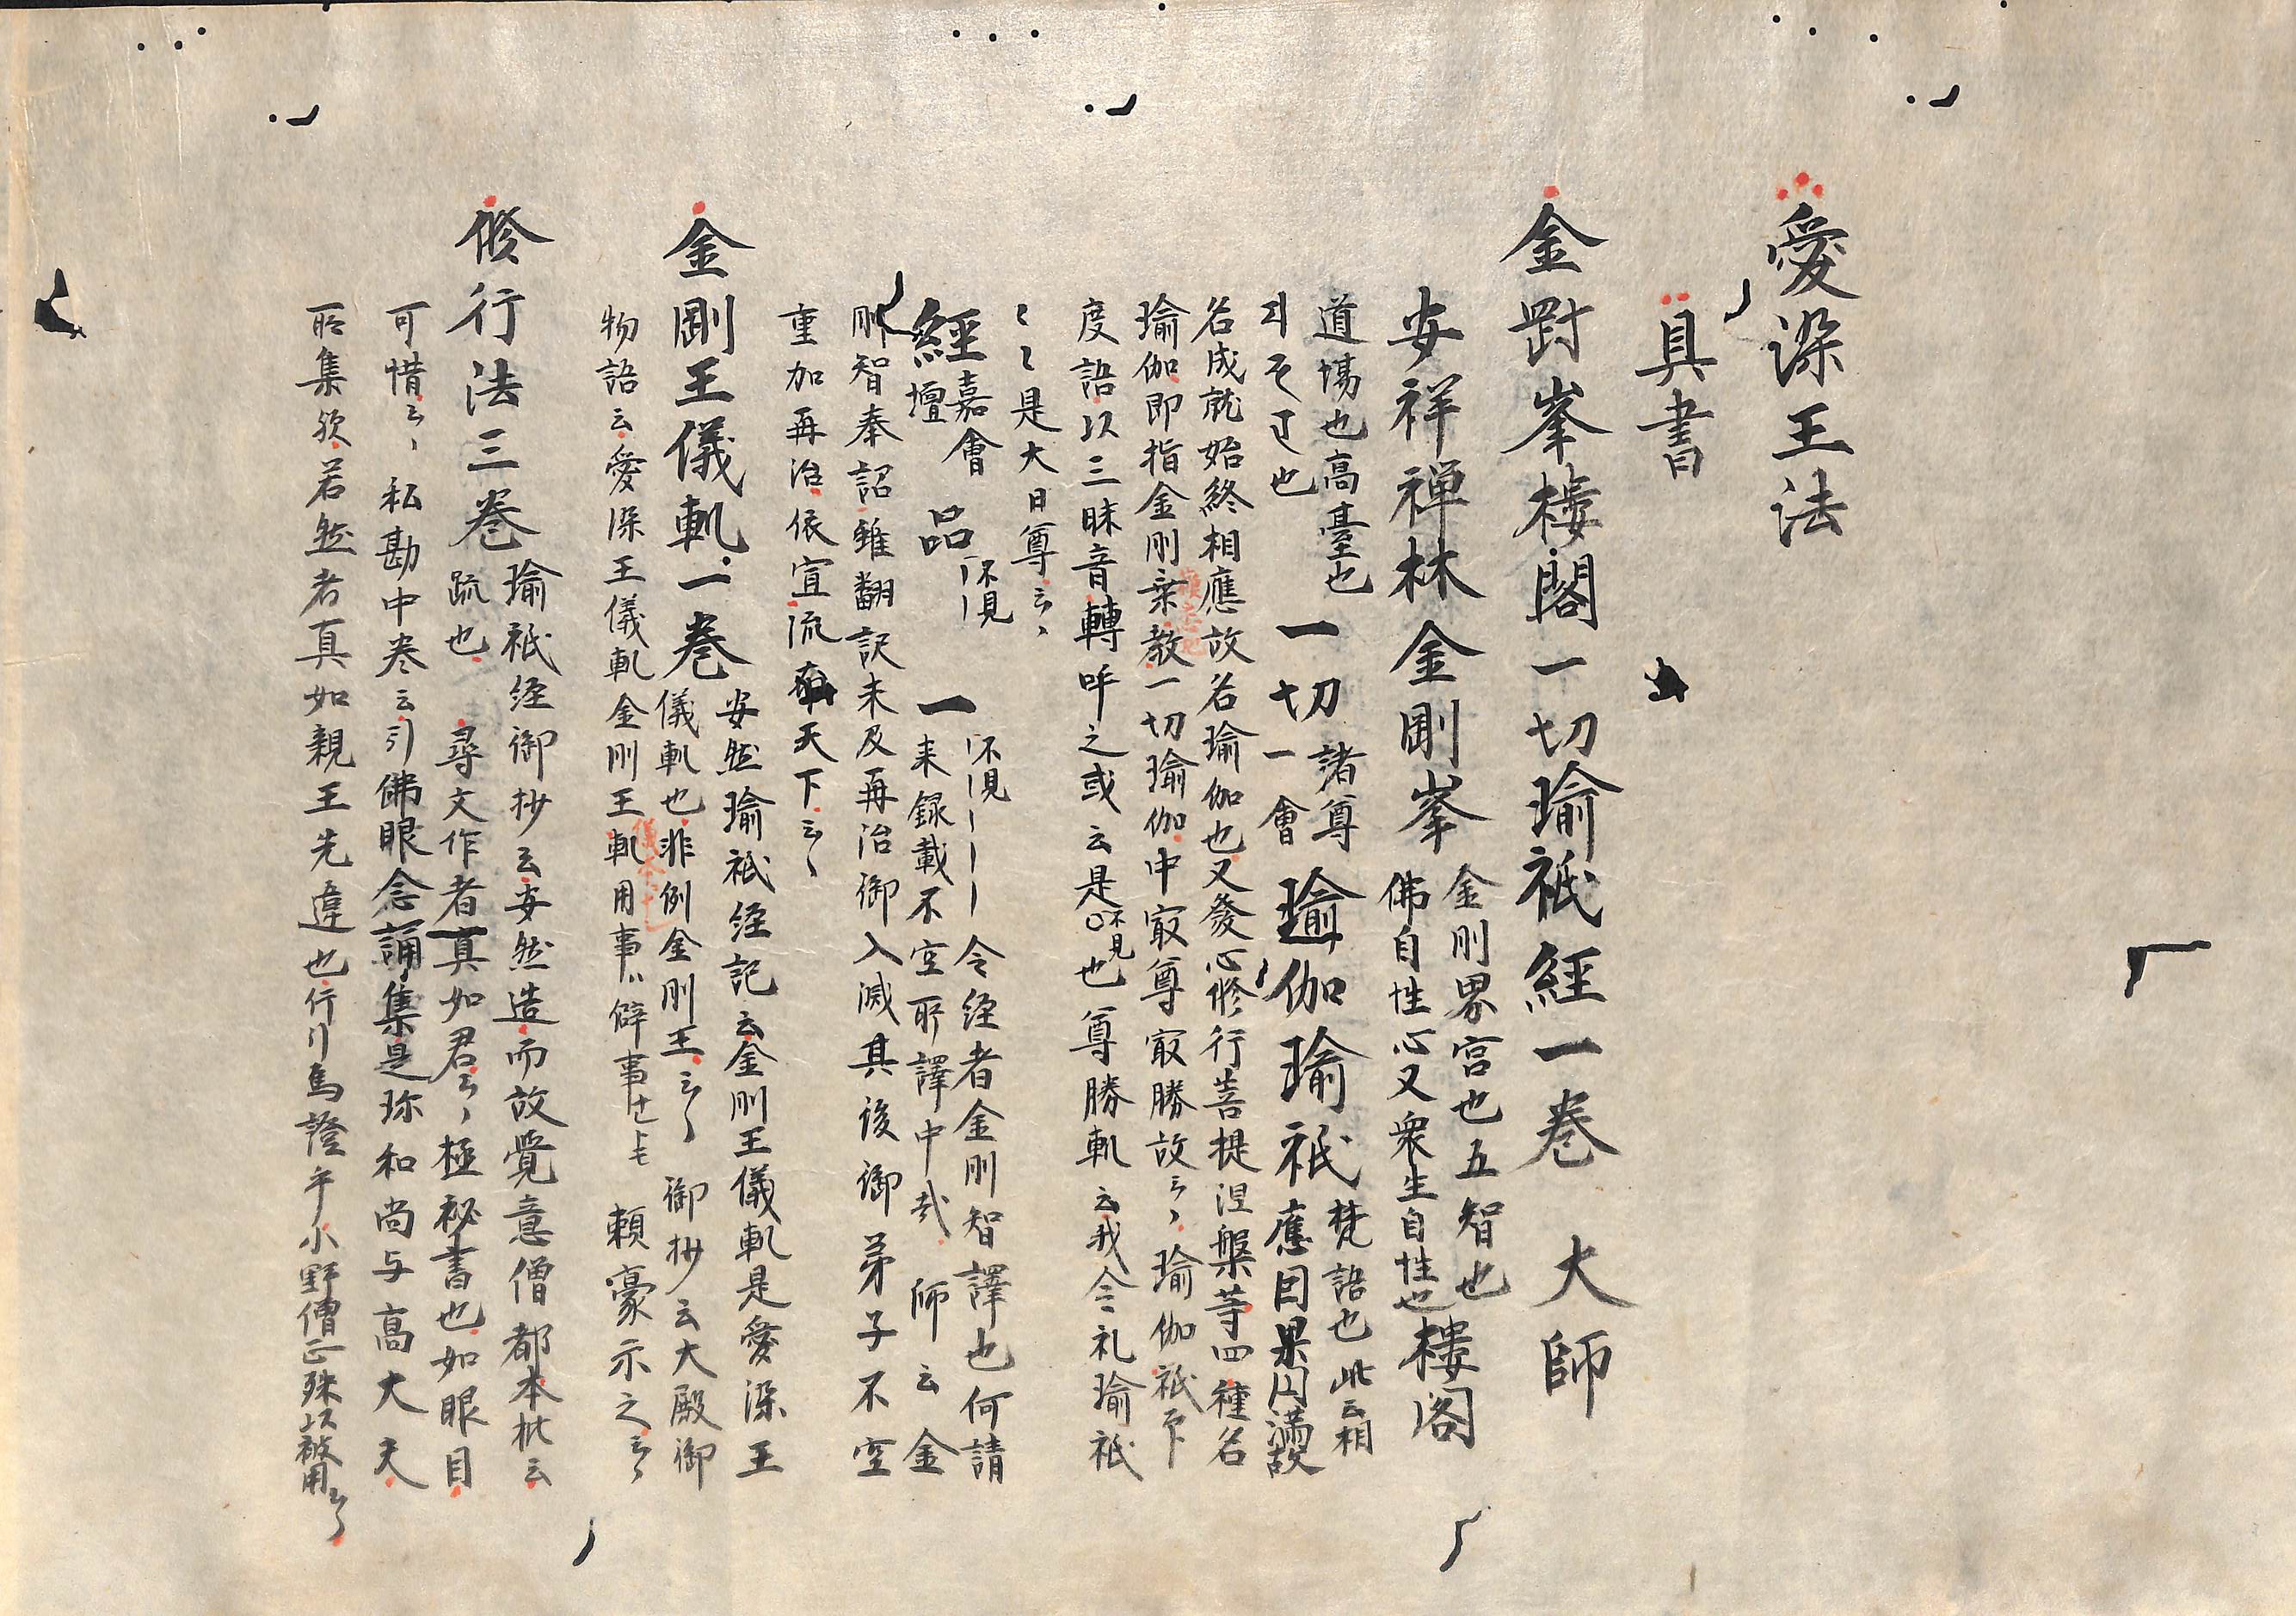 愛染王法
具書
金剛峯樓閣一切瑜祇經一巻 大師
安祥禅林 金剛峯 金剛界宮也五智也
佛自性心又衆生自性也 樓閣
道場也高臺也 一切 諸尊 瑜伽瑜祇 梵語也此云相
也 一會 應因果円満故
名成就始終相應故名瑜伽也又發心修行菩提涅槃等四種名
瑜伽即指金剛乗教一切瑜伽中冣尊冣勝故云々瑜伽祇下
度語以三昧音轉呼之或云是不見也尊勝軌云我今礼瑜祇
〻〻是大日尊云々
經 嘉會壇 品 不見 一 不見 今經者金剛智譯也何請
来録載不空所譯中哉 師云金
剛智奉詔雖翻訳未及再治御入滅其後御弟子不空
重加再治依宣流布天下云々
金剛王儀軌一巻 安然瑜祇經記云金剛王儀軌是愛染王
儀軌也非例金剛王云々 御抄云大殿御
物語云愛染王儀軌金剛王軌用事僻事 頼豪示之云々
修行法三巻 瑜祇経御抄云安然造而故覺意僧都本批云
疏也 尋文作者真如君云々極秘書也如眼目
可惜云々私勘中巻云引佛眼念誦集是珎和尚与高大夫
所集欤若然者真如親王先違也